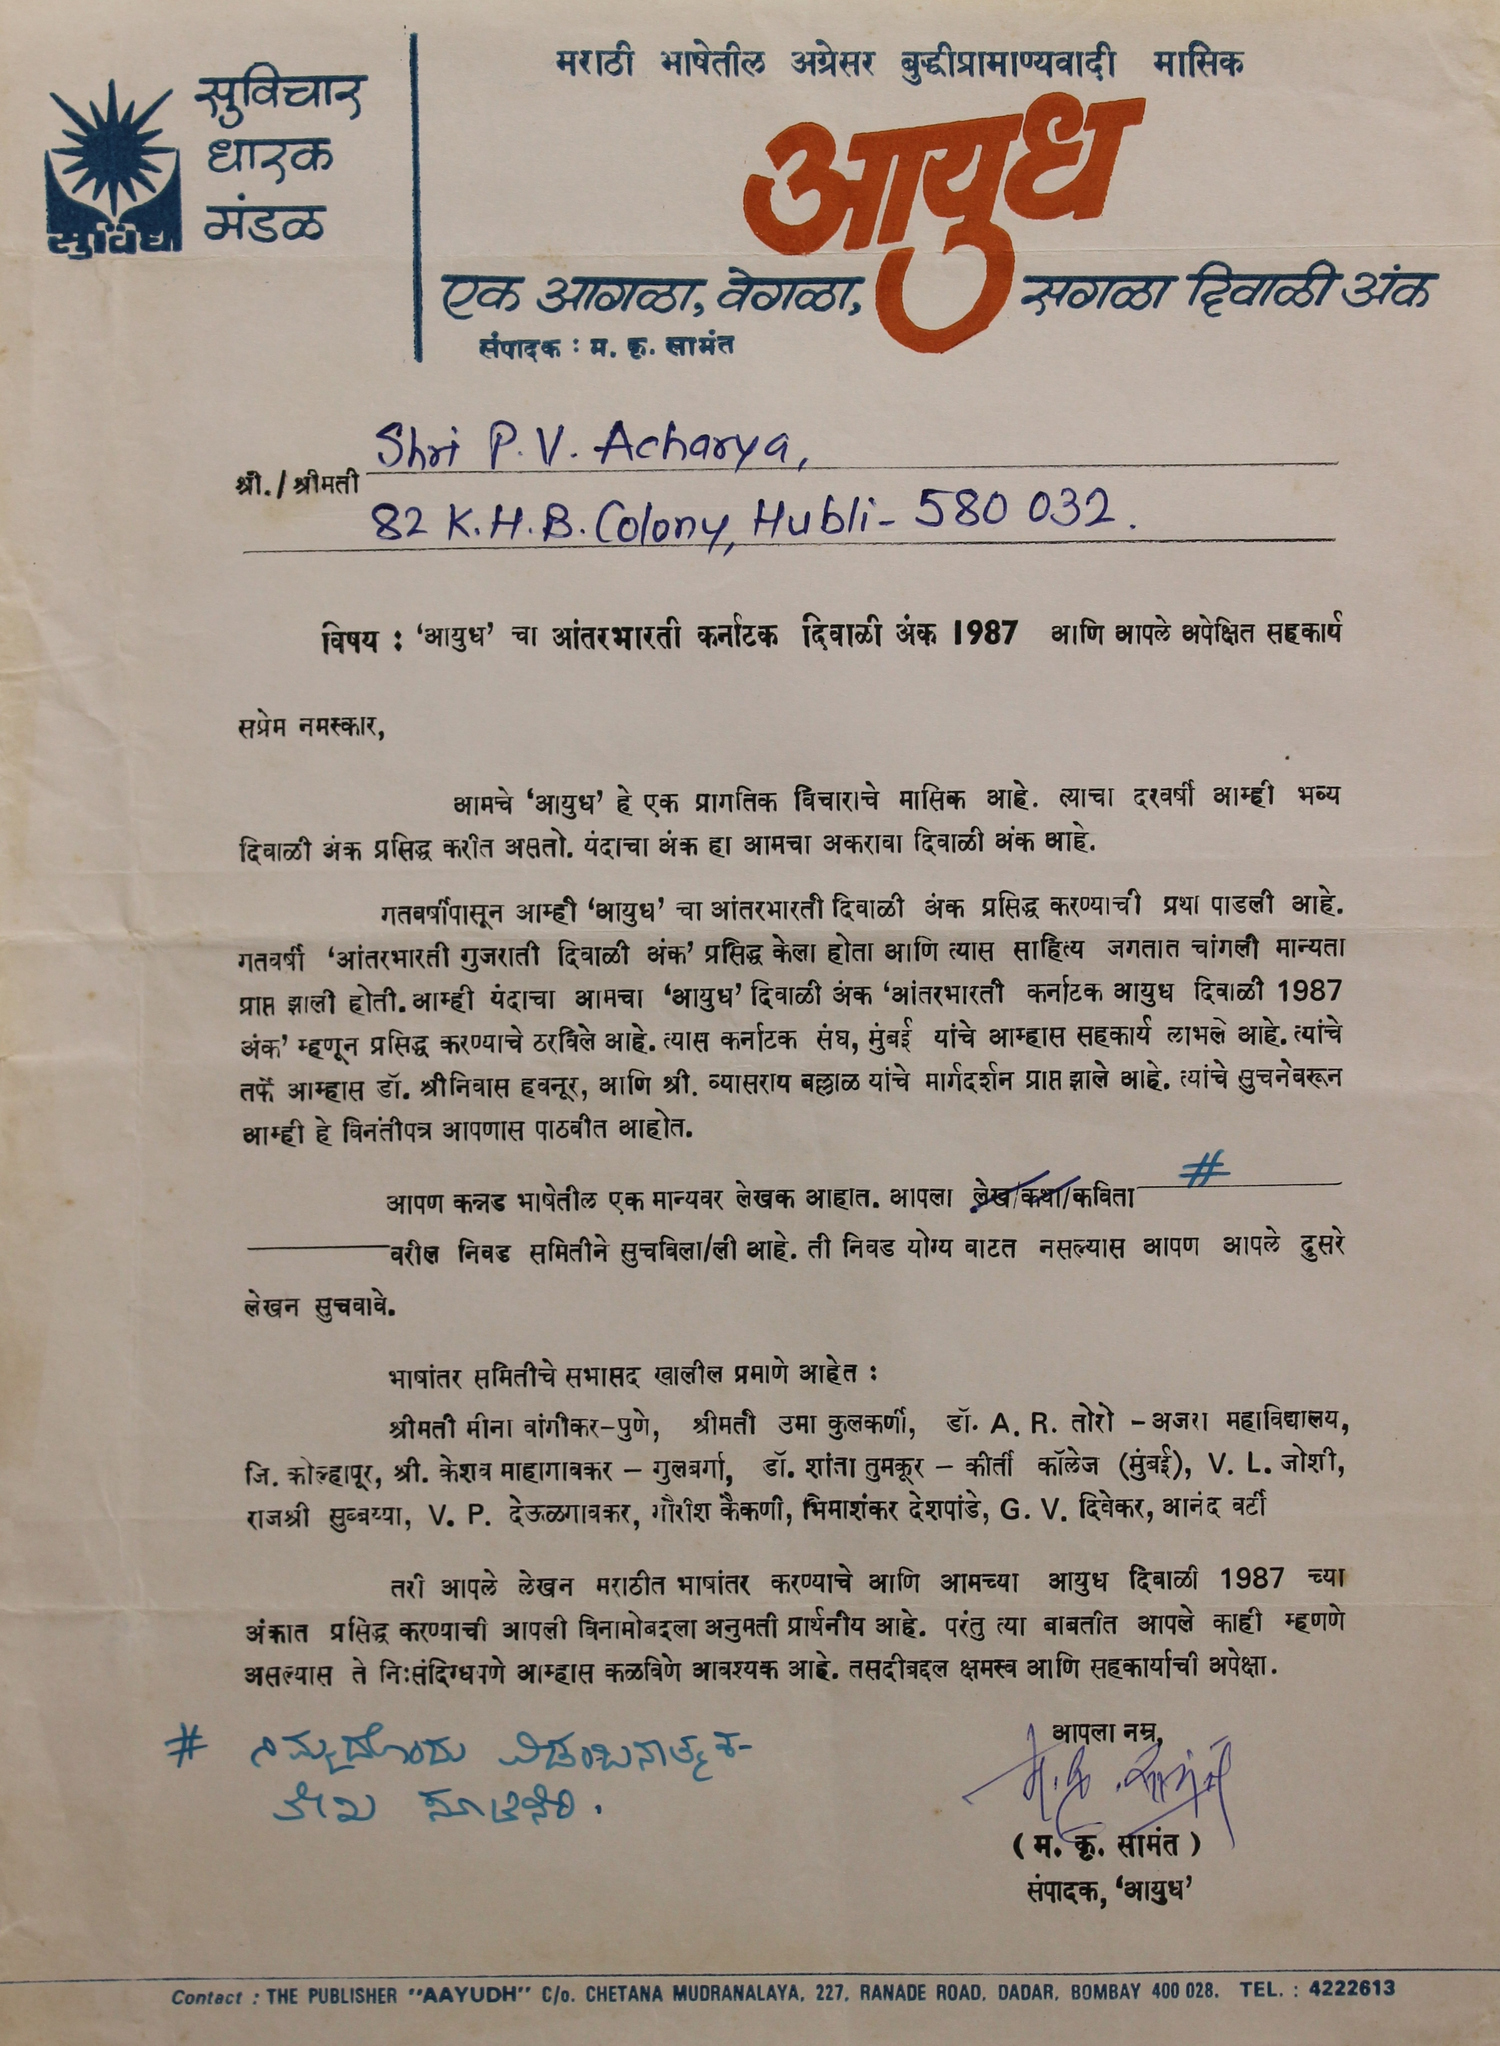 सुविचार
धारक
मंडळ
सुविधा
मराठी भाषेतील अग्रेसर बुद्धीप्रामाण्यवादी मासिक
आयुध
एक आगळा, वेगळा, सगळा दिवाळी अंक
संपादक : म. कृ. सामंत
Shri P. V. Acharya,
श्री./श्रीमती
82 K.H.B. Colony, Hubli- 580 032.
विषय : 'आयुध' चा आंतरभारती कर्नाटक दिवाळी अंक 1987 आणि आपले अपेक्षित सहकार्य
सप्रेम नमस्कार,
आमचे 'आयुध' हे एक प्रागतिक विचाराचे मासिक आहे. त्याचा दरवर्षी आम्ही भव्य
दिवाळी अंक प्रसिद्ध करीत असतो. यंदाचा अंक हा आमचा अकरावा दिवाळी अंक आहे.
गतवर्षीपासून आम्ही 'आयुध' चा आंतरभारती दिवाळी अंक प्रसिद्ध करण्याची प्रथा पाडली आहे.
गतवर्षी 'आंतरभारती गुजराती दिवाळी अंक' प्रसिद्ध केला होता आणि त्यास साहित्य जगतात चांगली मान्यता
प्राप्त झाली होती. आम्ही यंदाचा आमचा 'आयुध' दिवाळी अंक 'आंतरभारती कर्नाटक आयुध दिवाळी 1987
अंक' म्हणून प्रसिद्ध करण्याचे ठरविले आहे. त्यास कर्नाटक संघ, मुंबई यांचे आम्हास सहकार्य लाभले आहे. त्यांचे
तर्फे आम्हास डॉ. श्रीनिवास हवनूर, आणि श्री. व्यासराय बल्लाळ यांचे मार्गदर्शन प्राप्त झाले आहे. त्यांचे सुचनेवरून
आम्ही हे विनंतीपत्र आपणास पाठवीत आहोत.
आपण कन्नड भाषेतील एक मान्यवर लेखक आहात. आपला लेख/कथा/कविता #
वरील निवड समितीने सुचविला/ली आहे. ती निवड योग्य वाटत नसल्यास आपण आपले दुसरे
लेखन सुचवावे.
भाषांतर समितीचे सभासद खालील प्रमाणे आहेत :
श्रीमती मीना वांगीकर-पुणे, श्रीमती उमा कुलकर्णी, डॉ. A. R. तोरो - अजरा महाविद्यालय,
जि. कोल्हापूर, श्री. केशव माहागावकर - गुलबर्गा, डॉ. शांता तुमकूर - कीर्ती कॉलेज (मुंबई), V. L. जोशी,
राजश्री सुब्बय्या, V. P. देऊळगावकर, गौरीश कैकणी, भिमाशंकर देशपांडे, G. V. दिवेकर, आनंद वर्टी
तरी आपले लेखन मराठीत भाषांतर करण्याचे आणि आमच्या आयुध दिवाळी 1987 च्या
अंकात प्रसिद्ध करण्याची आपली विनामोबदला अनुमती प्रार्थनीय आहे. परंतु त्या बाबतीत आपले काही म्हणणे
असल्यास ते निःसंदिग्धपणे आम्हास कळविणे आवश्यक आहे. तसदीबद्दल क्षमस्व आणि सहकार्याची अपेक्षा.
# ನಿಮ್ಮದೊಂದು ವಿಡಂಬನಾತ್ಮಕ-
ಲೇಖ ಸೂಚಿಸಿರಿ.
आपला नम्र,
म. कृ. सामंत
( म. कृ. सामंत )
संपादक, 'आयुध'
Contact : THE PUBLISHER "AAYUDH" C/o. CHETANA MUDRANALAYA, 227, RANADE ROAD, DADAR, BOMBAY 400 028. TEL. : 4222613